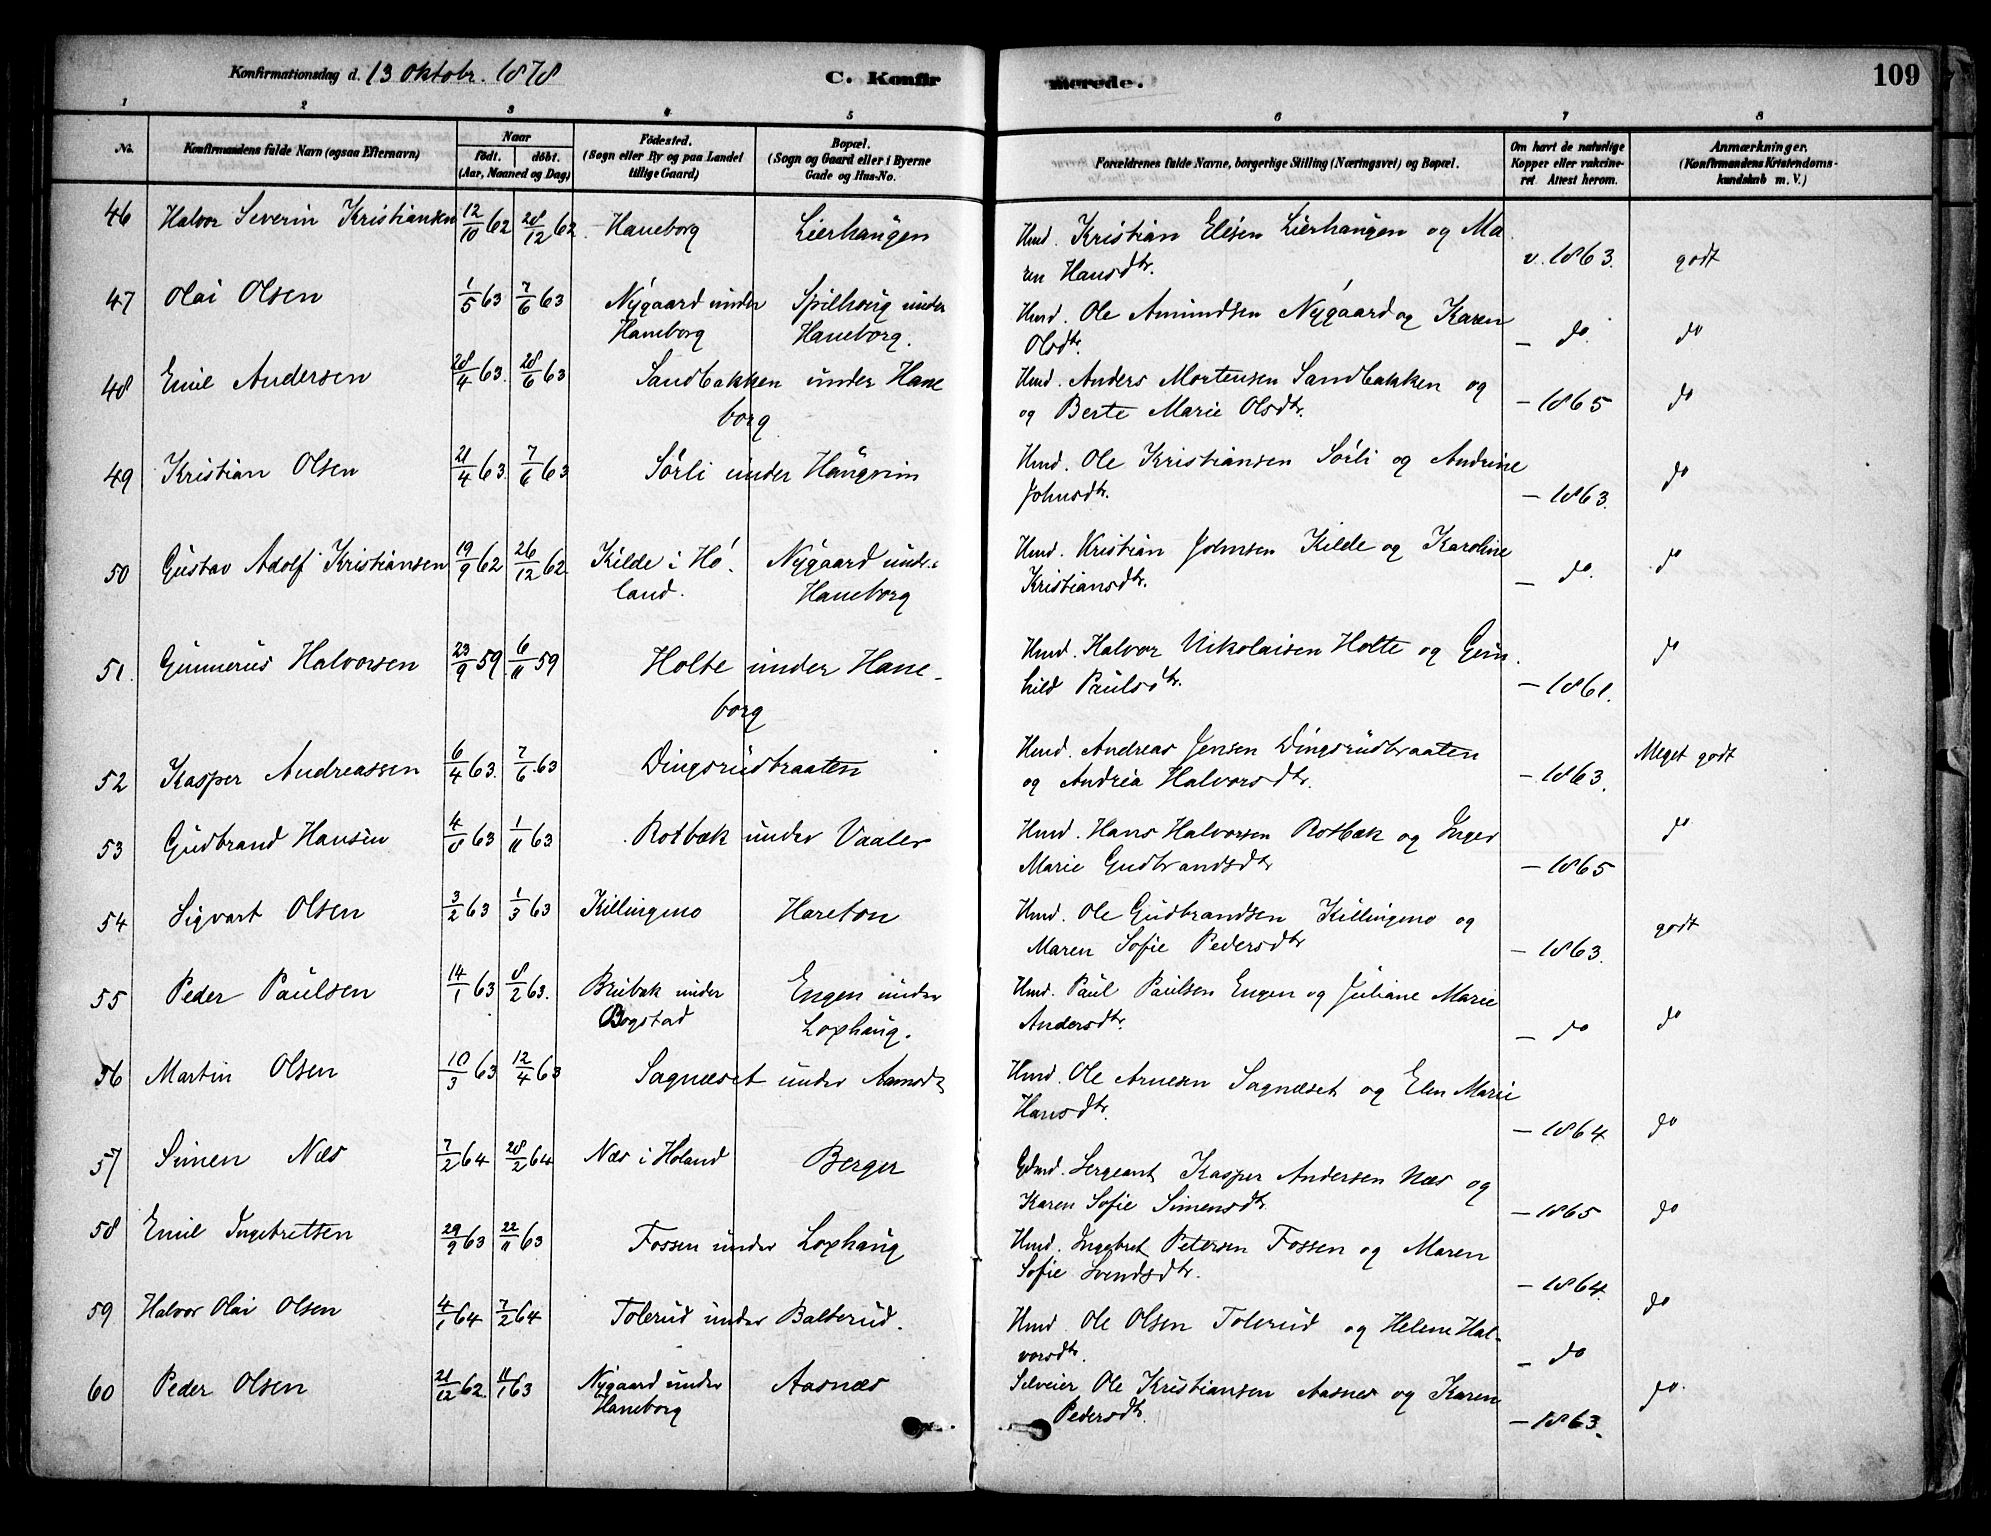 Konfirmationsdag d. 13 Oktobr. 1878
C. Konfirmerede.
109
1 2 3 4 5 6 7 8
No. Konfirmandens fulde Navn (ogsaa Efternavn) Naar født. døbt. (Aar, Maaned og Dag) Fødested. (Sogn eller By og paa Landet tillige Gaard) Bopæl. (Sogn og Gaard eller i Byerne Gade og Hus-No. Forældrenes fulde Navne, borgerlige Stilling (Næringsvei) og Bopæl. Om havt de naturlige Kopper eller vakcineret. Attest herom. Anmærkninger. (Konfirmandens Kristendomskundskab m. V.)
46 Halvor Severin Kristiansen 12/10 62 28/12 62 Haneborg Lierhaugen Hmd. Kristian Elisen Lierhaugen og Ma
ren Hansdtr. v. 1863. godt
47 Olai Olsen 1/5 63 7/6 63 Nygaard under Spilhoug under Hmd. Ole Amundsen Nygaard og Karen
Haneborg Haneborg. Olsdtr. — do. do
48 Emil Andersen 28/4 63. 28/6 63 Sandbakken under Hane Hmd. Anders Mortensen Sandbakken og
borg og Berte Marie Olsdtr. — 1865 do
49 Kristian Olsen 21/4 63. 7/6 63 Sørli under Haugrim Hmd. Ole Kristiansen Sørli og Andrine
Johnsdtr. — 1863. do
50 Gustav Adolf Kristiansen 19/9 62 26/12 62 Kilde i Hø. Nygaard und. Hmd. Kristian Johnsen Kilde og Karoline
land. Haneborg Kristiansdtr. — do. do
51. Gunnerius Halvorsen 23/9 59. 6/11 59 Holte under Hane- Hmd. Halvor Nikolaisen Holte og Gun.
borg hild Paulsdtr. — 1861. do
52 Kasper Andreassen 6/4 63. 7/6 63 Dingsrudbraaten Hmd. Andreas Jensen Dingsrudbraaten
og Andrea Halvorsdtr. — 1863. Meget godt
53 Gudbrand Hansen 4/8 63 1/11 63 Rodbæk under Vaaler Hmd. Hans Halvorsen Rodbæk og Inger
Marie Gudbrandsdtr — 1865 do
54 Sigvart Olsen 3/2 63 1/3 63 Killingmo Hareton Hmd. Ole Gudbrandsen Killingmo og
Maren Sofie Pedersdtr — 1863. godt
55 Peder Paulsen 14/1 63 8/2 63. Brubæk under Engen under Hmd. Paul Paulsen Engen og Juliane Marie
Bogstad Loxhaug. Andersdtr. — do do
56 Martin Olsen 10/3 63 12/4 63 Sagnæset under Aamodt Hmd. Ole Arnesen Sagnæset og Elen Marie
Hansdtr. — 1864. do
57 Simen Næs 7/2 64 28/2 64 Næs i Høland Berger Gdmd. Sergeant Kasper Andersen Næs og
Karen Sofie Simensdtr. — 1865 do
58 Emil Ingebretsen 29/9 63 22/11 63 Fossen under Loxhaug Hmd. Ingebret Petersen Fossen og Maren
Sofie Svendsdtr. — 1864. do
59 Halvor Olai Olsen 4/1 64 7/2 64 Tolerud under Balterud. Hmd. Ole Olsen Tolerud og Helene Hal-
vorsdtr. — do
60 Peder Olsen 21/12 62. 11/1 63 Nygaard under Aasnæs Selveier Ole Kristiansen Aasnes og Karen
Haneborg Pedersdtr. — 1863. do.